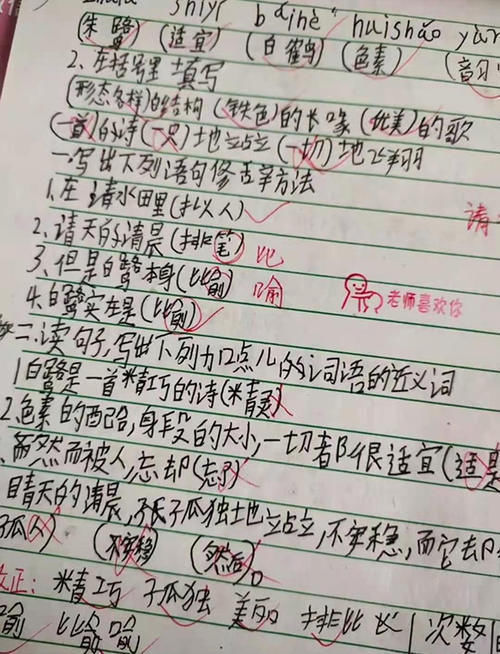 shiyí báihè huishǎo yùn
(朱鹭) (适宜) (白鹤) (色素) (音韵
2、在括号里填写
(形态各样)的结构 (铁色)的长喙 (优美)的歌
(一首)的诗 (一只)地站立 (一切)地飞翔
一、写出下列语句修辞方法
1、在清水田里(拟人)
请
2、晴天的清晨(排笔) 比
3、但是白鹭本身(比喻) 喻
老师喜欢你
4、白鹭实在是(比喻)
二、读句子,写出下列加点儿的词语的近义词
1白鹭是一首精巧的诗(精灵)
2、色素的配合,身段的大小,一切都很适宜(适是
然而被人,忘却(忘了)
晴天的清晨,孤孤独地站立,不安稳,而它却
孤人) (不安稳) (然后)。
改正: 精巧 孤独 美丽 排比 长 次数
喻 比喻喻